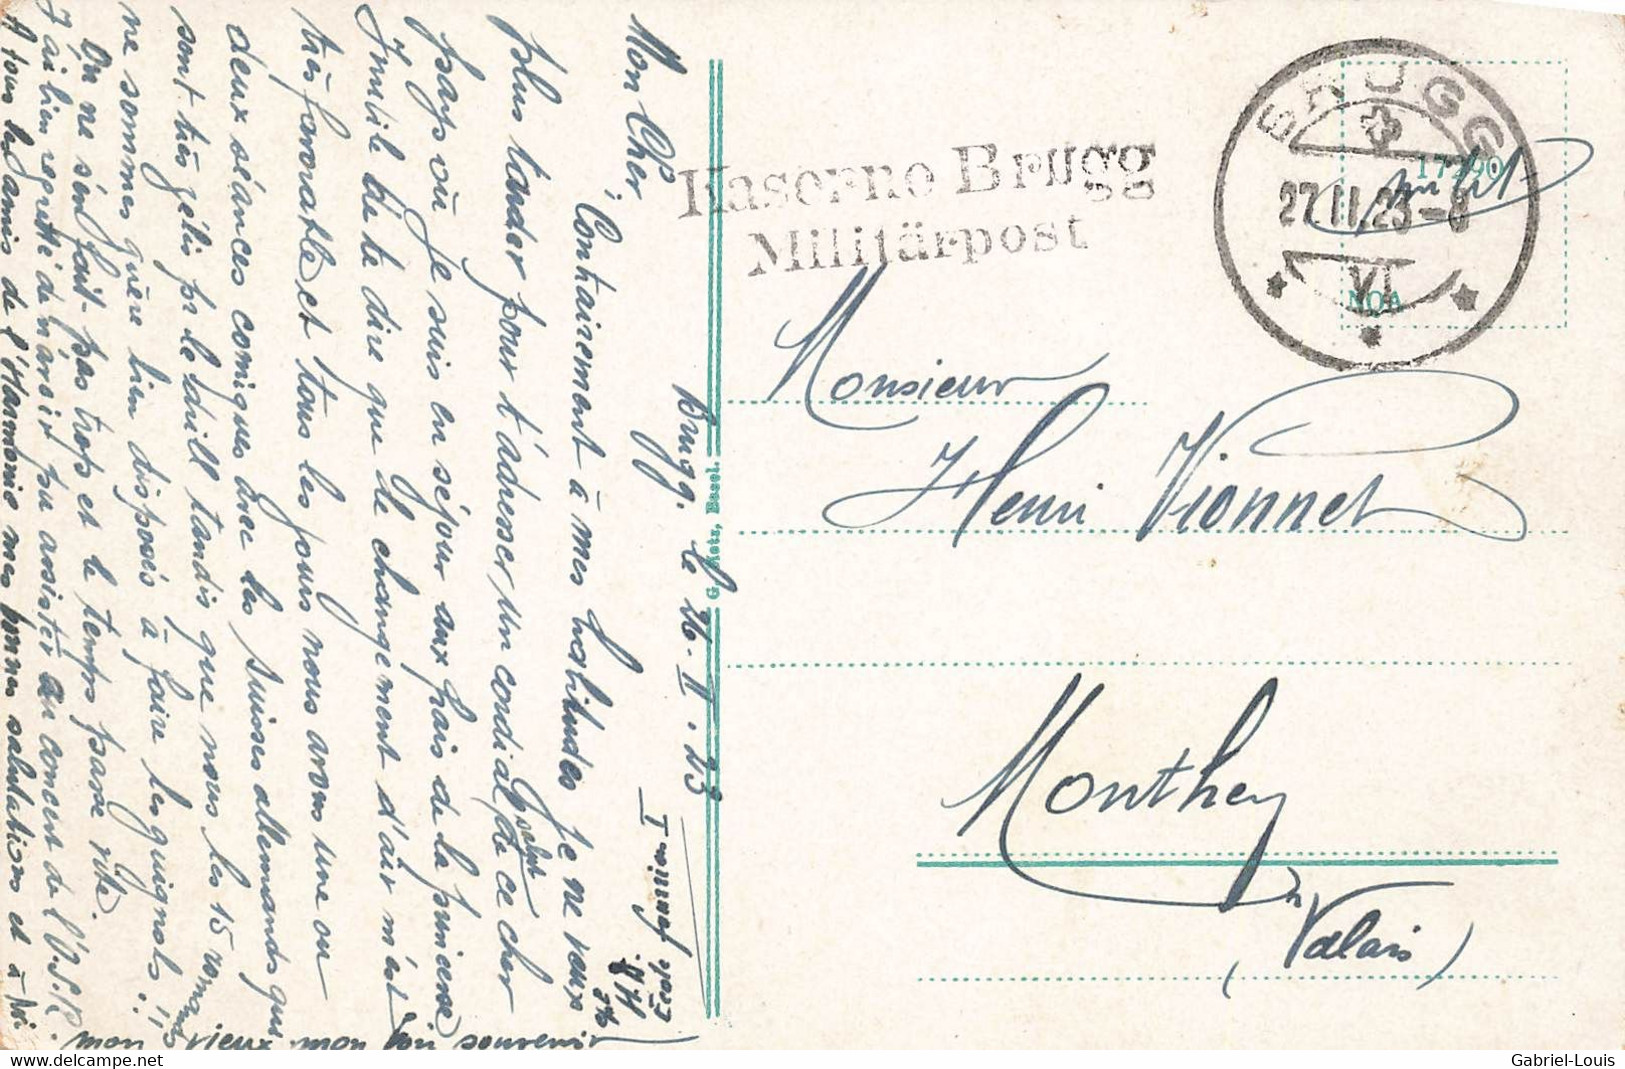 Brugg. le 26. II. 23
Mon Cher
Contrairement à mes habitudes je ne veux
plus tarder pour t'adresser un cordial salut de ce cher
pays où je suis en séjour aux frais de la princesse
Inutile de te dire que le changement d'air m'est
très favorable et tous les jours nous avons une ou
deux séances comiques avec les suisses allemands qui
sont très gélés par le drill tandis que nous les 15 romands
ne sommes guère bien disposés à faire les guignols !!
On ne s'en fait pas trop et le temps passe vite.
J'ai bien regretté de n'avoir pu assister au concert de l'O.S.R.
A tous les amis de l'Harmonie mes bonnes salutations et à toi
mon vieux mon bon souvenir
Kaserne Brugg
Militärpost
BRUGG
27.II.23-8
VI
17290
NOA
G. Metz, Basel.
Monsieur
Henri Vionnet
Monthey
(Valais)
delcampe.net
Gabriel-Louis